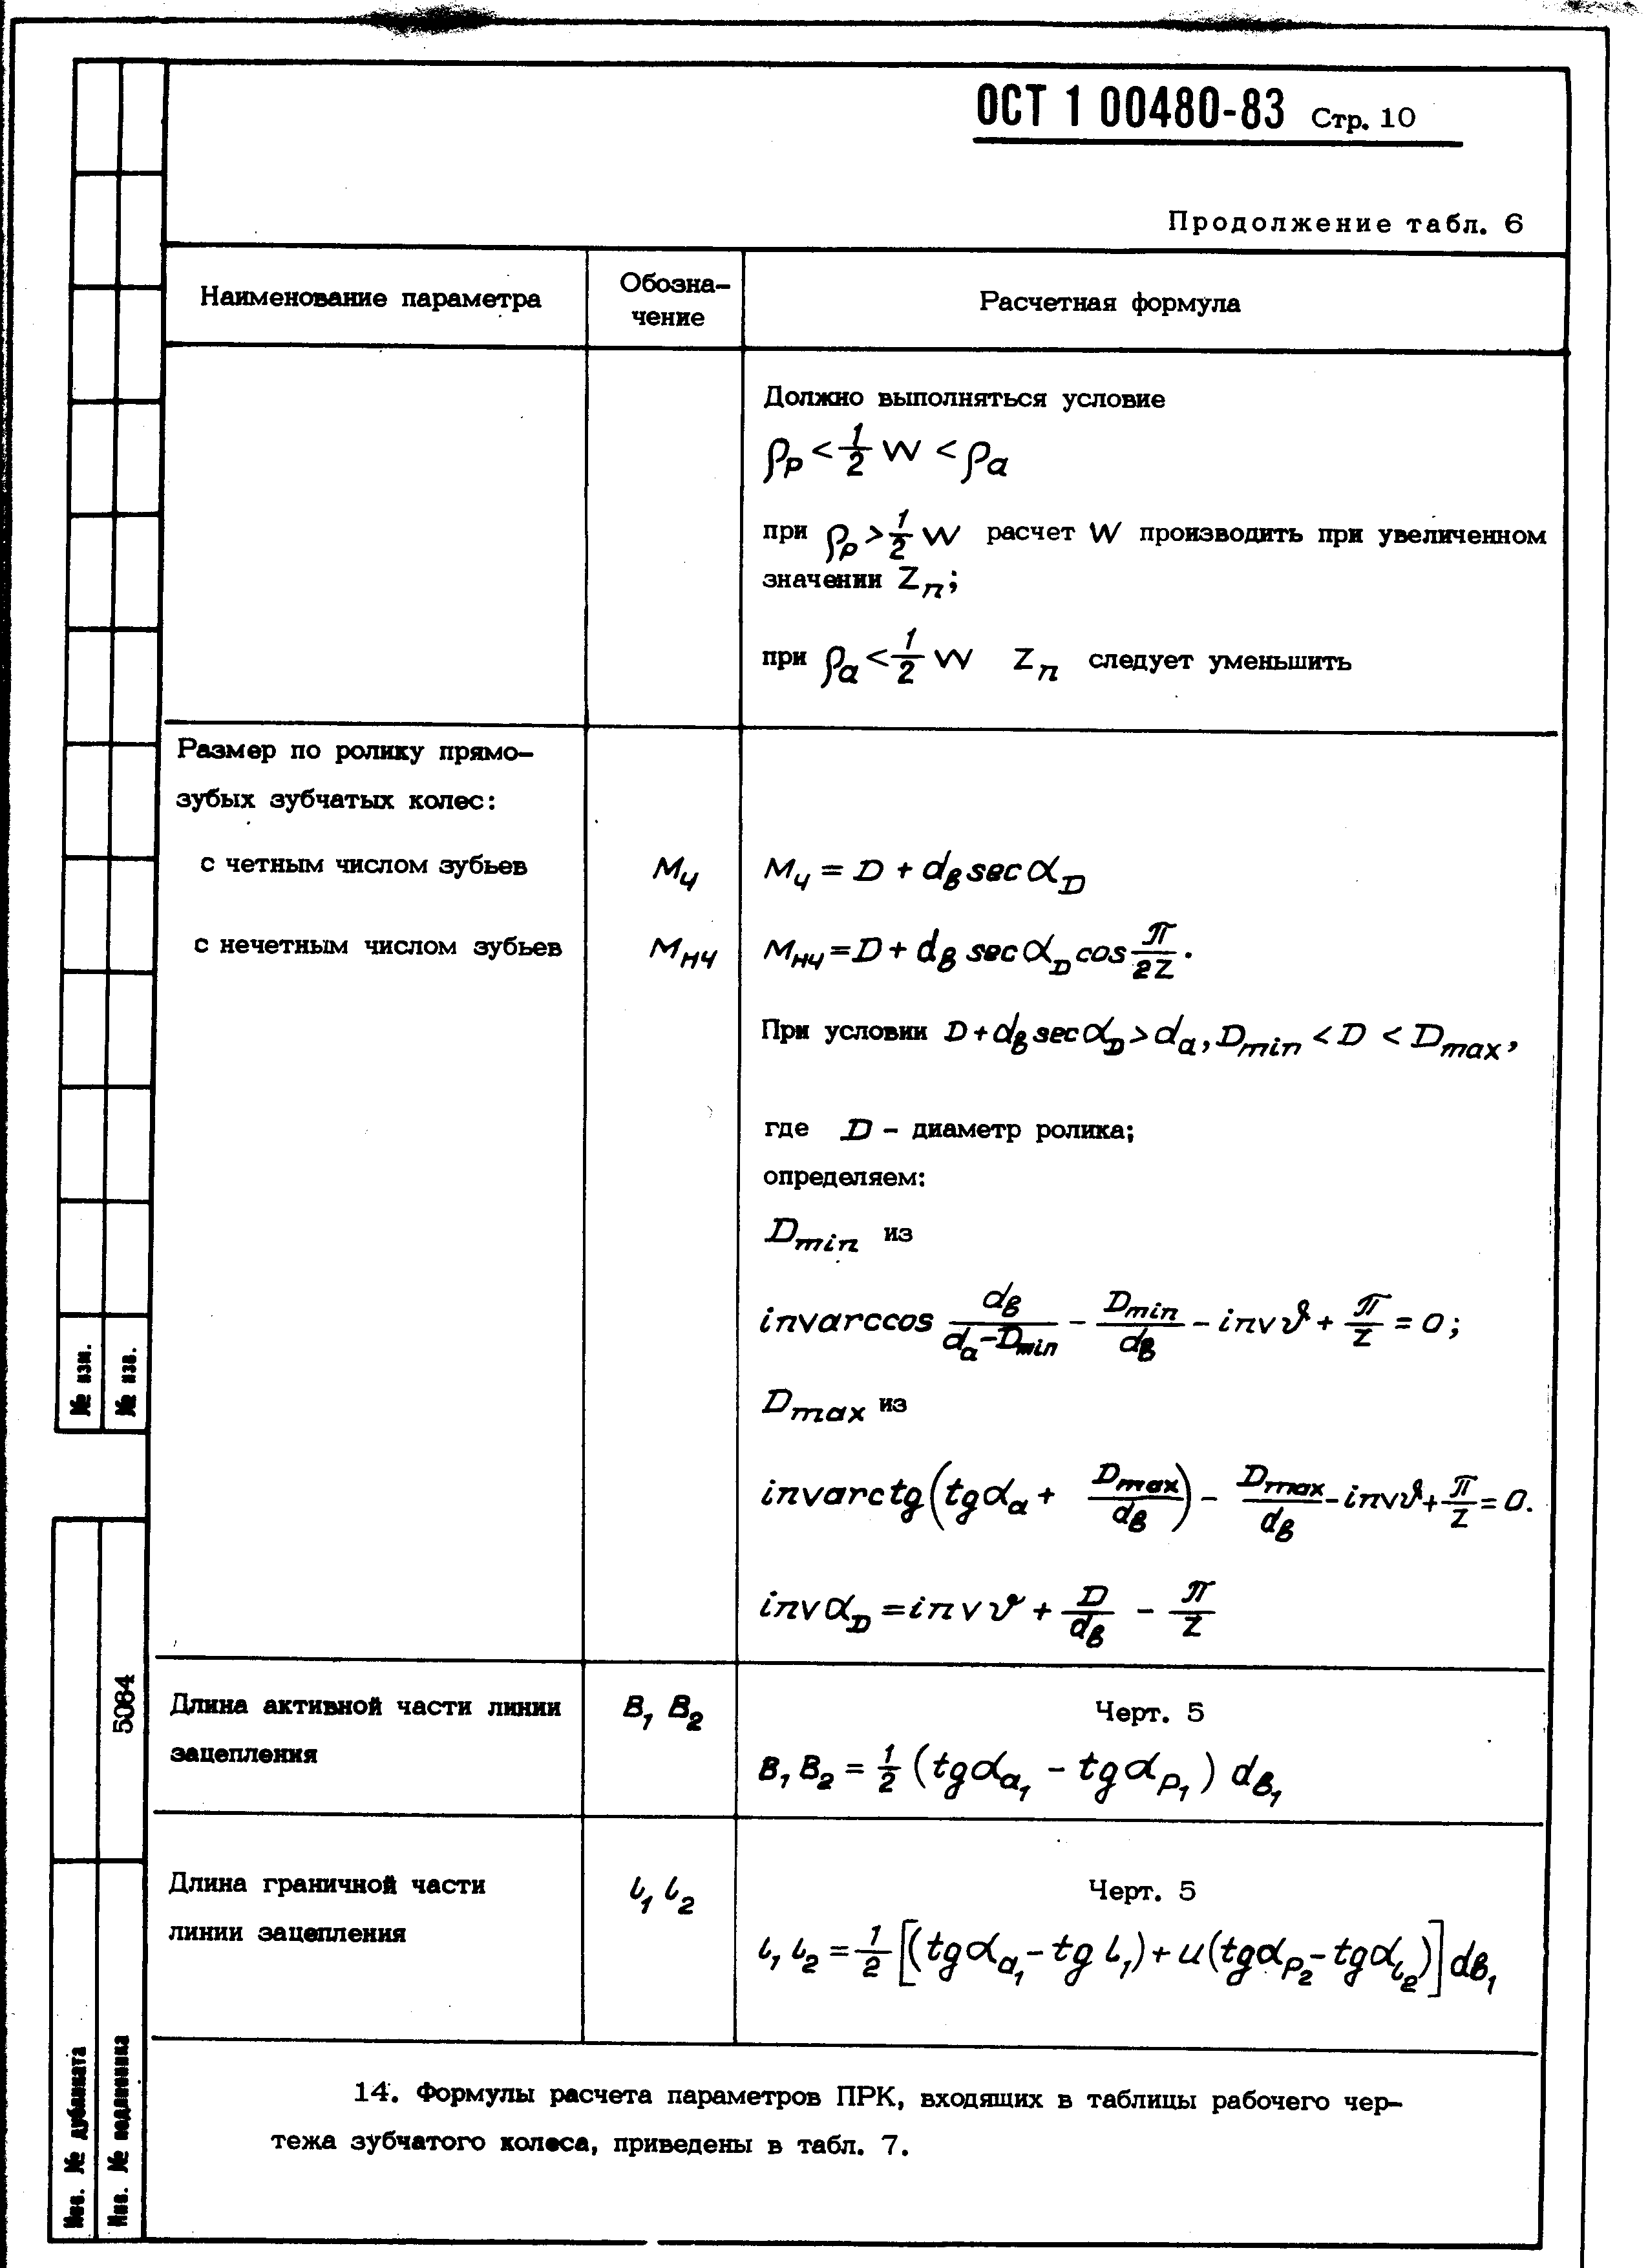 ОСТ 1 00480-83 Стр. 10
Продолжение табл. 6
Наименование параметра
Обозна-
чение
Расчетная формула
Должно выполняться условие
ρ_p < 1/2 W < ρ_a
при ρ_p > 1/2 W расчет W производить при увеличенном
значении Z_п;
при ρ_a < 1/2 W Z_п следует уменьшить
Размер по ролику прямо-
зубых зубчатых колес:
с четным числом зубьев
M_ч
M_ч = D + d_в sec α_D
с нечетным числом зубьев
M_нч
M_нч = D + d_в sec α_D cos π/2Z.
При условии D + d_в sec α_D > d_a, D_min < D < D_max,
где D – диаметр ролика;
определяем:
D_min из
inv arccos d_в/(d_a - D_min) - D_min/d_в - inv ϑ + π/Z = 0;
D_max из
inv arctg (tg α_a + D_max/d_в) - D_max/d_в - inv ϑ + π/Z = 0.
inv α_D = inv ϑ + D/d_в - π/Z
Длина активной части линии
зацепления
B_1 B_2
Черт. 5
B_1 B_2 = 1/2 (tg α_a1 - tg α_p1) d_в1
Длина граничной части
линии зацепления
l_1 l_2
Черт. 5
l_1 l_2 = 1/2 [(tg α_a1 - tg l_1) + u (tg α_p2 - tg α_l2)] d_в1
14. Формулы расчета параметров ПРК, входящих в таблицы рабочего чер-
тежа зубчатого колеса, приведены в табл. 7.
№ изм.
№ изв.
5084
Инв. № дубликата
Инв. № подлинника